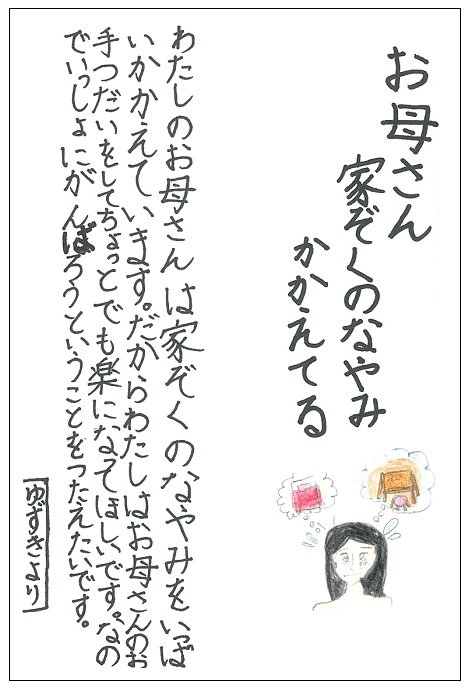 お母さん
家ぞくのなやみ
かかえてる
わたしのお母さんは家ぞくのなやみをいっぱ
いかかえています。だからわたしはお母さんのお
手つだいをしてちょっとでも楽になてほしいです。なの
でいっしょにがんばろうということをつたえたいです。
ゆずきより